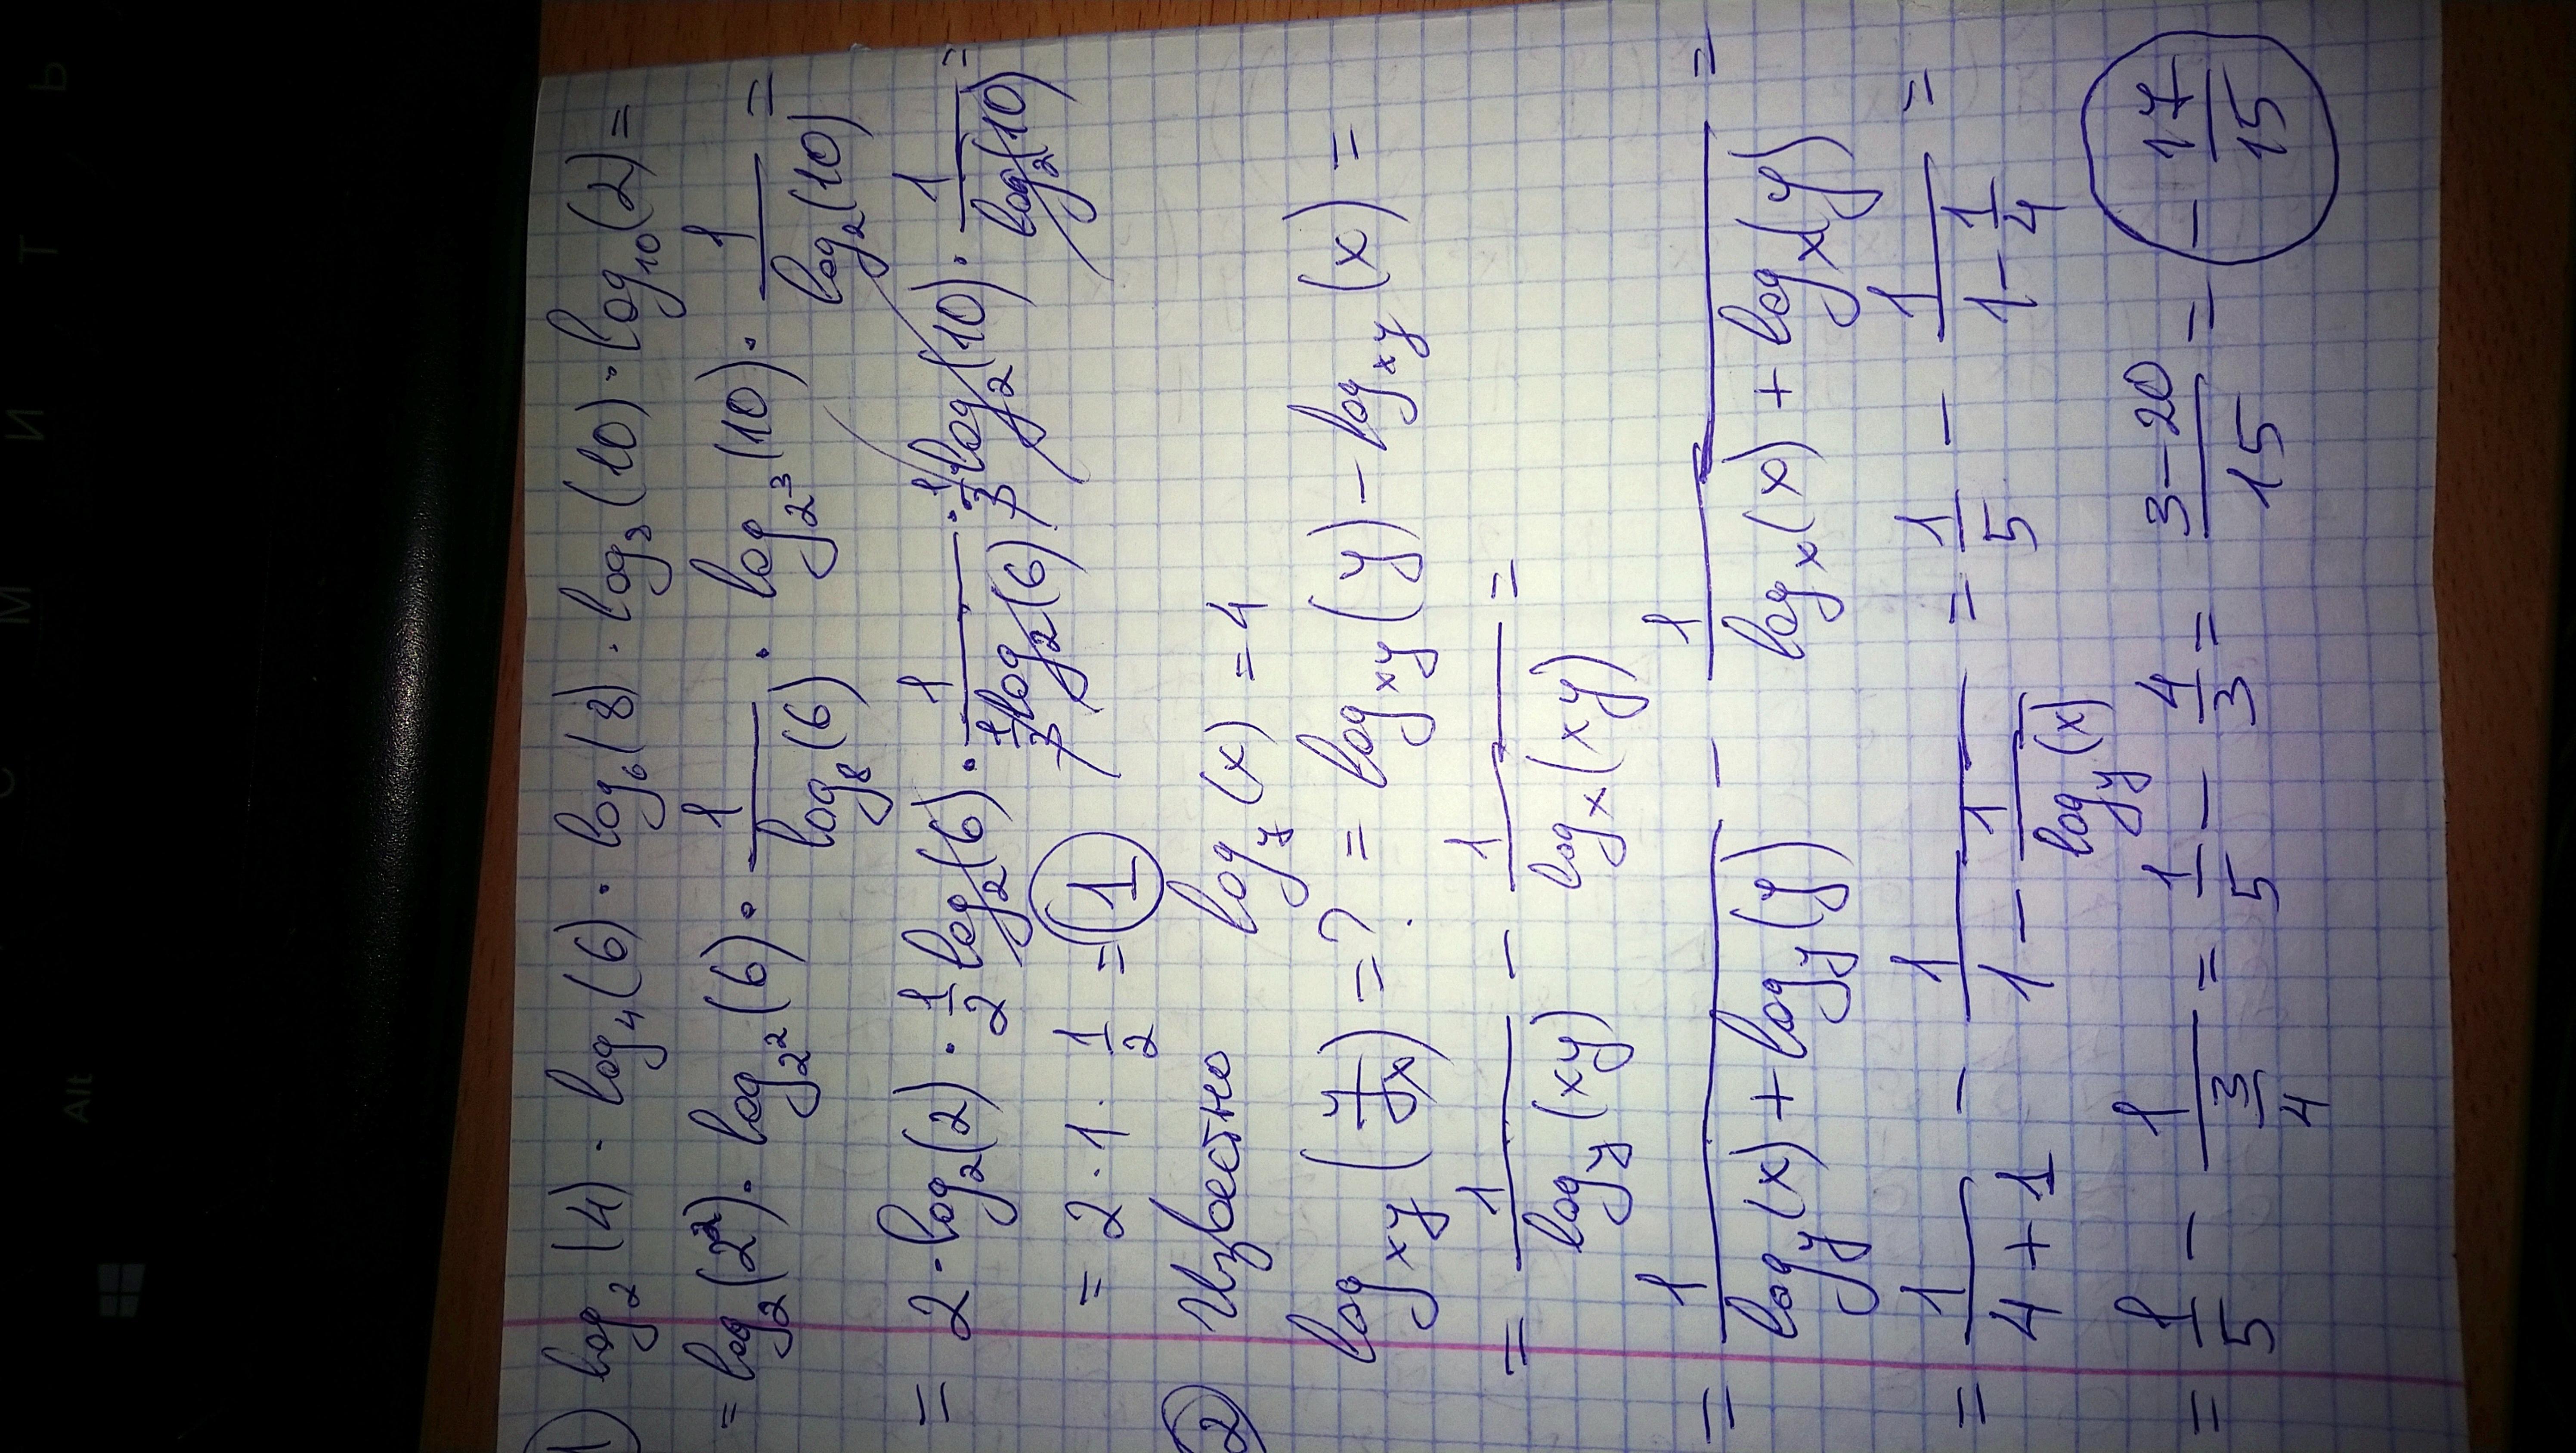 1) log₂(4) · log₄(6) · log₆(8) · log₈(10) · log₁₀(2) =
= log₂(2²) · log₂²(6) · 1/log₈(6) · log₂³(10) · 1/log₂(10) =
= 2 · log₂(2) · 1/2 log₂(6) · 1/(1/3 log₂(6)) · 1/3 log₂(10) · 1/log₂(10) =
= 2 · 1 · 1/2 = 1
2 Известно log_y(x) = 4
log_xy(y/x) = ? = log_xy(y) - log_xy(x) =
= 1/log_y(xy) - 1/log_x(xy) =
= 1/(log_y(x) + log_y(y)) - 1/(log_x(x) + log_x(y)) =
= 1/(4+1) - 1/(1 - 1/log_y(x)) = 1/5 - 1/(1 - 1/4) =
= 1/5 - 1/(3/4) = 1/5 - 4/3 = (3-20)/15 = - 17/15
Alt
С М И Т Ь